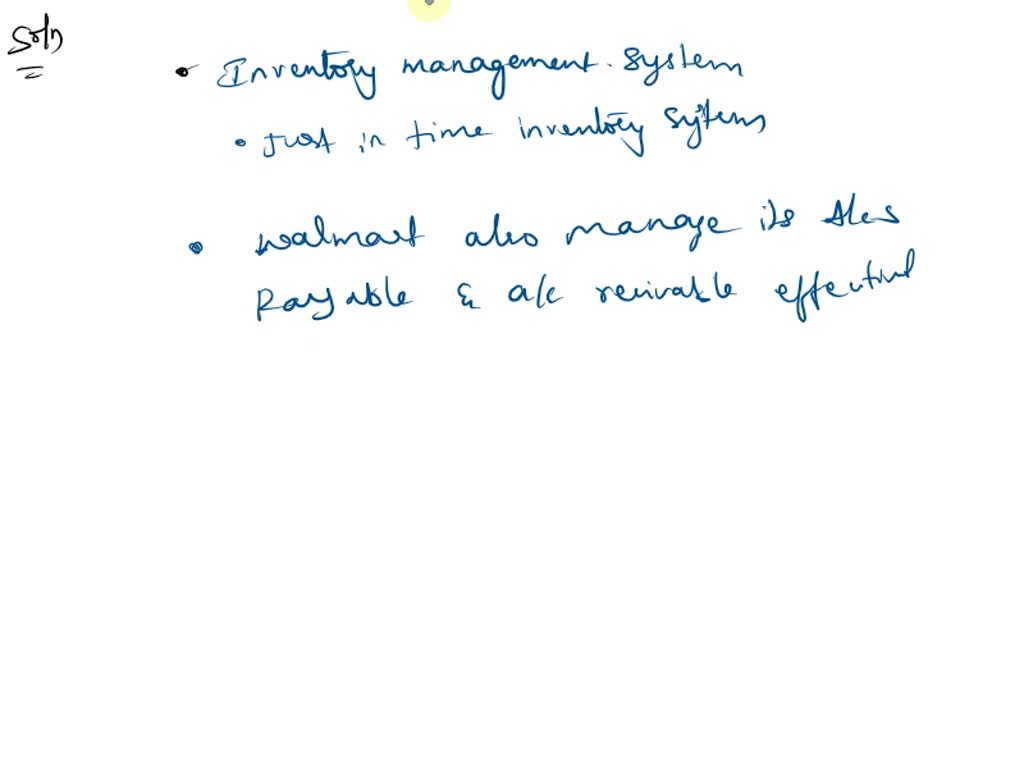 Soln
• Inventory management system
• Just in time inventory system
• walmart also manage its
Payable & a/c receivable